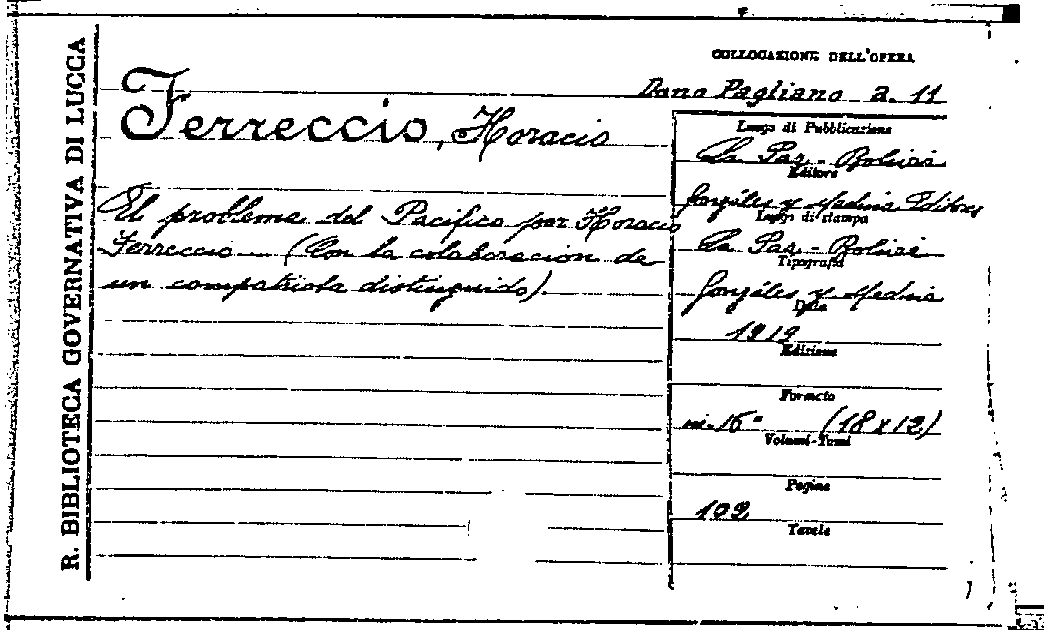 R. BIBLIOTECA GOVERNATIVA DI LUCCA
COLLOCAZIONE DELL'OPERA
Dono Pagliano a. 11
Ferreccio, Horacio
El problema del Pacifico por Horacio
Ferreccio — (Con la colaboración de
un compatriota distinguido).
Luogo di Pubblicazione
La Paz - Bolivia
Editore
Gonzáles y Medina Editores
Luogo di stampa
La Paz - Bolivia
Tipografia
Gonzáles y Medina
Data
1919
Edizione
Formato
in-16° (18x12)
Volumi-Tomi
Pagine
102
Tavole